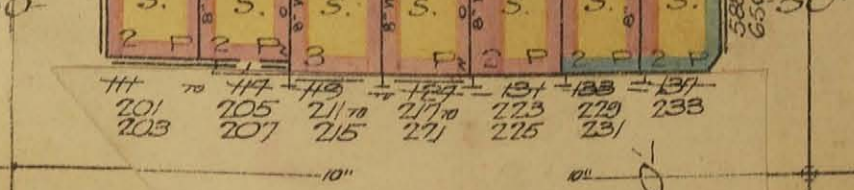 S. S. S. S. S. S. S.
2 P 2 P 3 P D P 2 P 2 P
111 TO 117 119 127 131 133 137
201 205 211 TO 217 TO 223 229 233
203 207 215 221 225 231
10" 10"